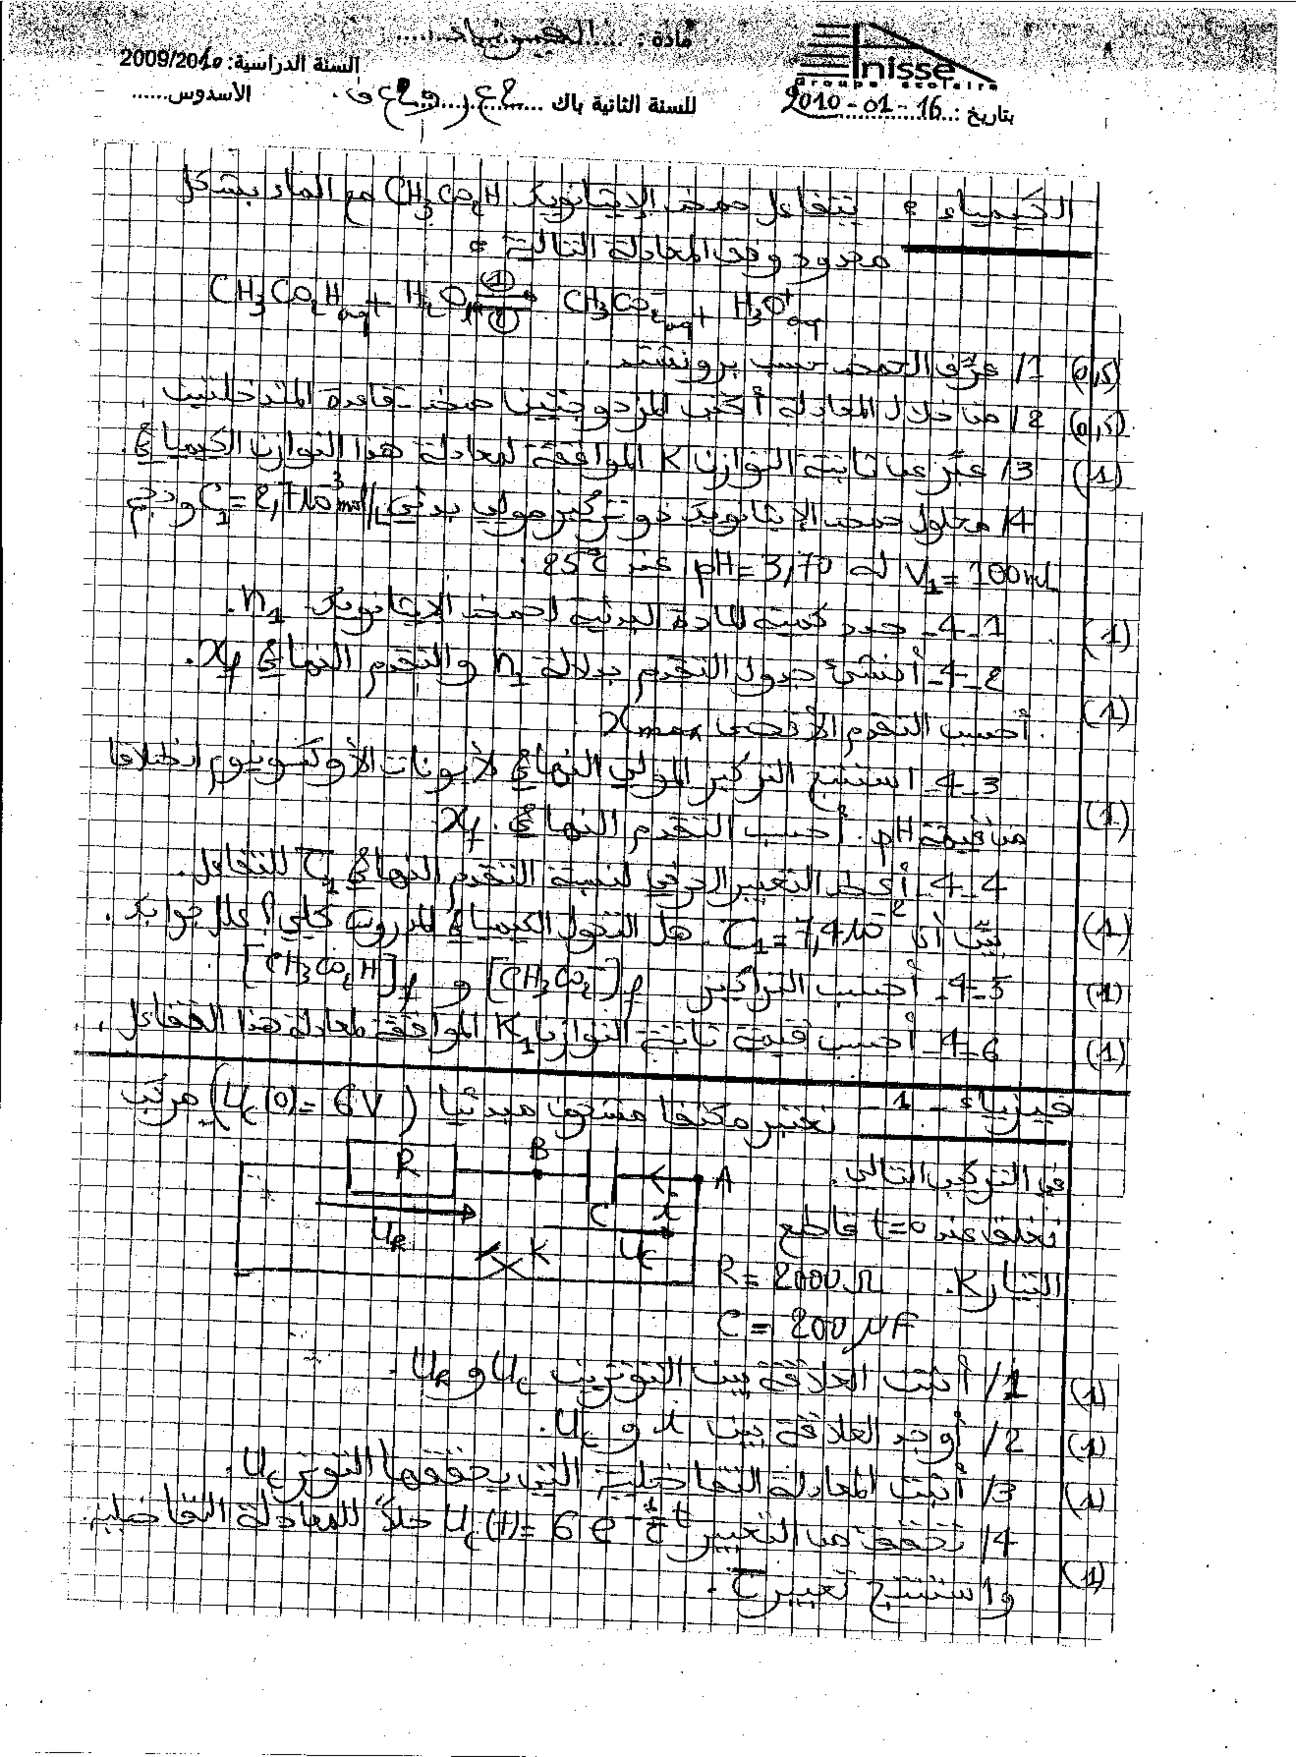 مادة : ...الفيزياء......
السنة الدراسية: 2009/2010
Anisse
Groupe scolaire
الأسدوس......
للسنة الثانية باك
بتاريخ : 2010-01-16
الكيمياء : يتفاعل حمض الإيثانويك CH₃CO₂H مع الماء بشكل
محدود وفق المعادلة التالية :
CH₃CO₂H aq + H₂O l ⇌ (1) (2) CH₃CO₂⁻ aq + H₃O⁺ aq
(0,5) 1/ عرّف الحمض حسب برونشتد .
(0,5) 2/ من خلال المعادلة أكتب المزدوجتين حمض-قاعدة المتدخلتين .
(1) 3/ عبّر عن ثابتة التوازن K الموافقة لمعادلة هذا التوازن الكيميائي.
4/ محلول حمض الإيثانويك ذو تركيز مولي بدئي C₁ = 2,7.10⁻³ mol/L وحجم
V₁ = 100 mL له pH = 3,70 عند 25°C .
(1) 4-1- حدد كمية المادة البدئية لحمض الإيثانويك n₁.
4-2- أنشئ جدول التقدم بدلالة n₁ والتقدم النهائي xf.
(1) أحسب التقدم الأقصى xmax
4-3- استنتج التركيز المولي النهائي لأيونات الأوكسونيوم انطلاقا
(1) من قيمة pH. أحسب التقدم النهائي xf.
4-4- أعط التعبير الحرفي لنسبة التقدم النهائي τ₁ للتفاعل.
(1) بيّن أن τ₁ = 7,4.10⁻². هل التحول الكيميائي المدروس كلي؟ علل جوابك.
(1) 4-5- أحسب التراكيز [CH₃CO₂⁻]f و [CH₃CO₂H]f
(1) 4-6- أحسب قيمة ثابتة التوازن K₁ الموافقة لمعادلة هذا التفاعل.
فيزياء - 1 - نعتبر مكثفا مشحون مبدئيا (Uc(0) = 6V) مركب
في التركيب التالي.
R B A
C i
UR K Uc
نغلق عند t=0 قاطع
التيار K. R = 2000 Ω
C = 200 μF
(1) 1/ أثبت العلاقة بين التوترين Uc و UR.
(1) 2/ أوجد العلاقة بين i و Uc.
(1) 3/ أثبت المعادلة التفاضلية التي يحققها التوتر Uc.
4/ تحقق من التعبير Uc(t) = 6 e^(-1/τ t) حلاً للمعادلة التفاضلية.
(1) واستنتج تعبير τ.